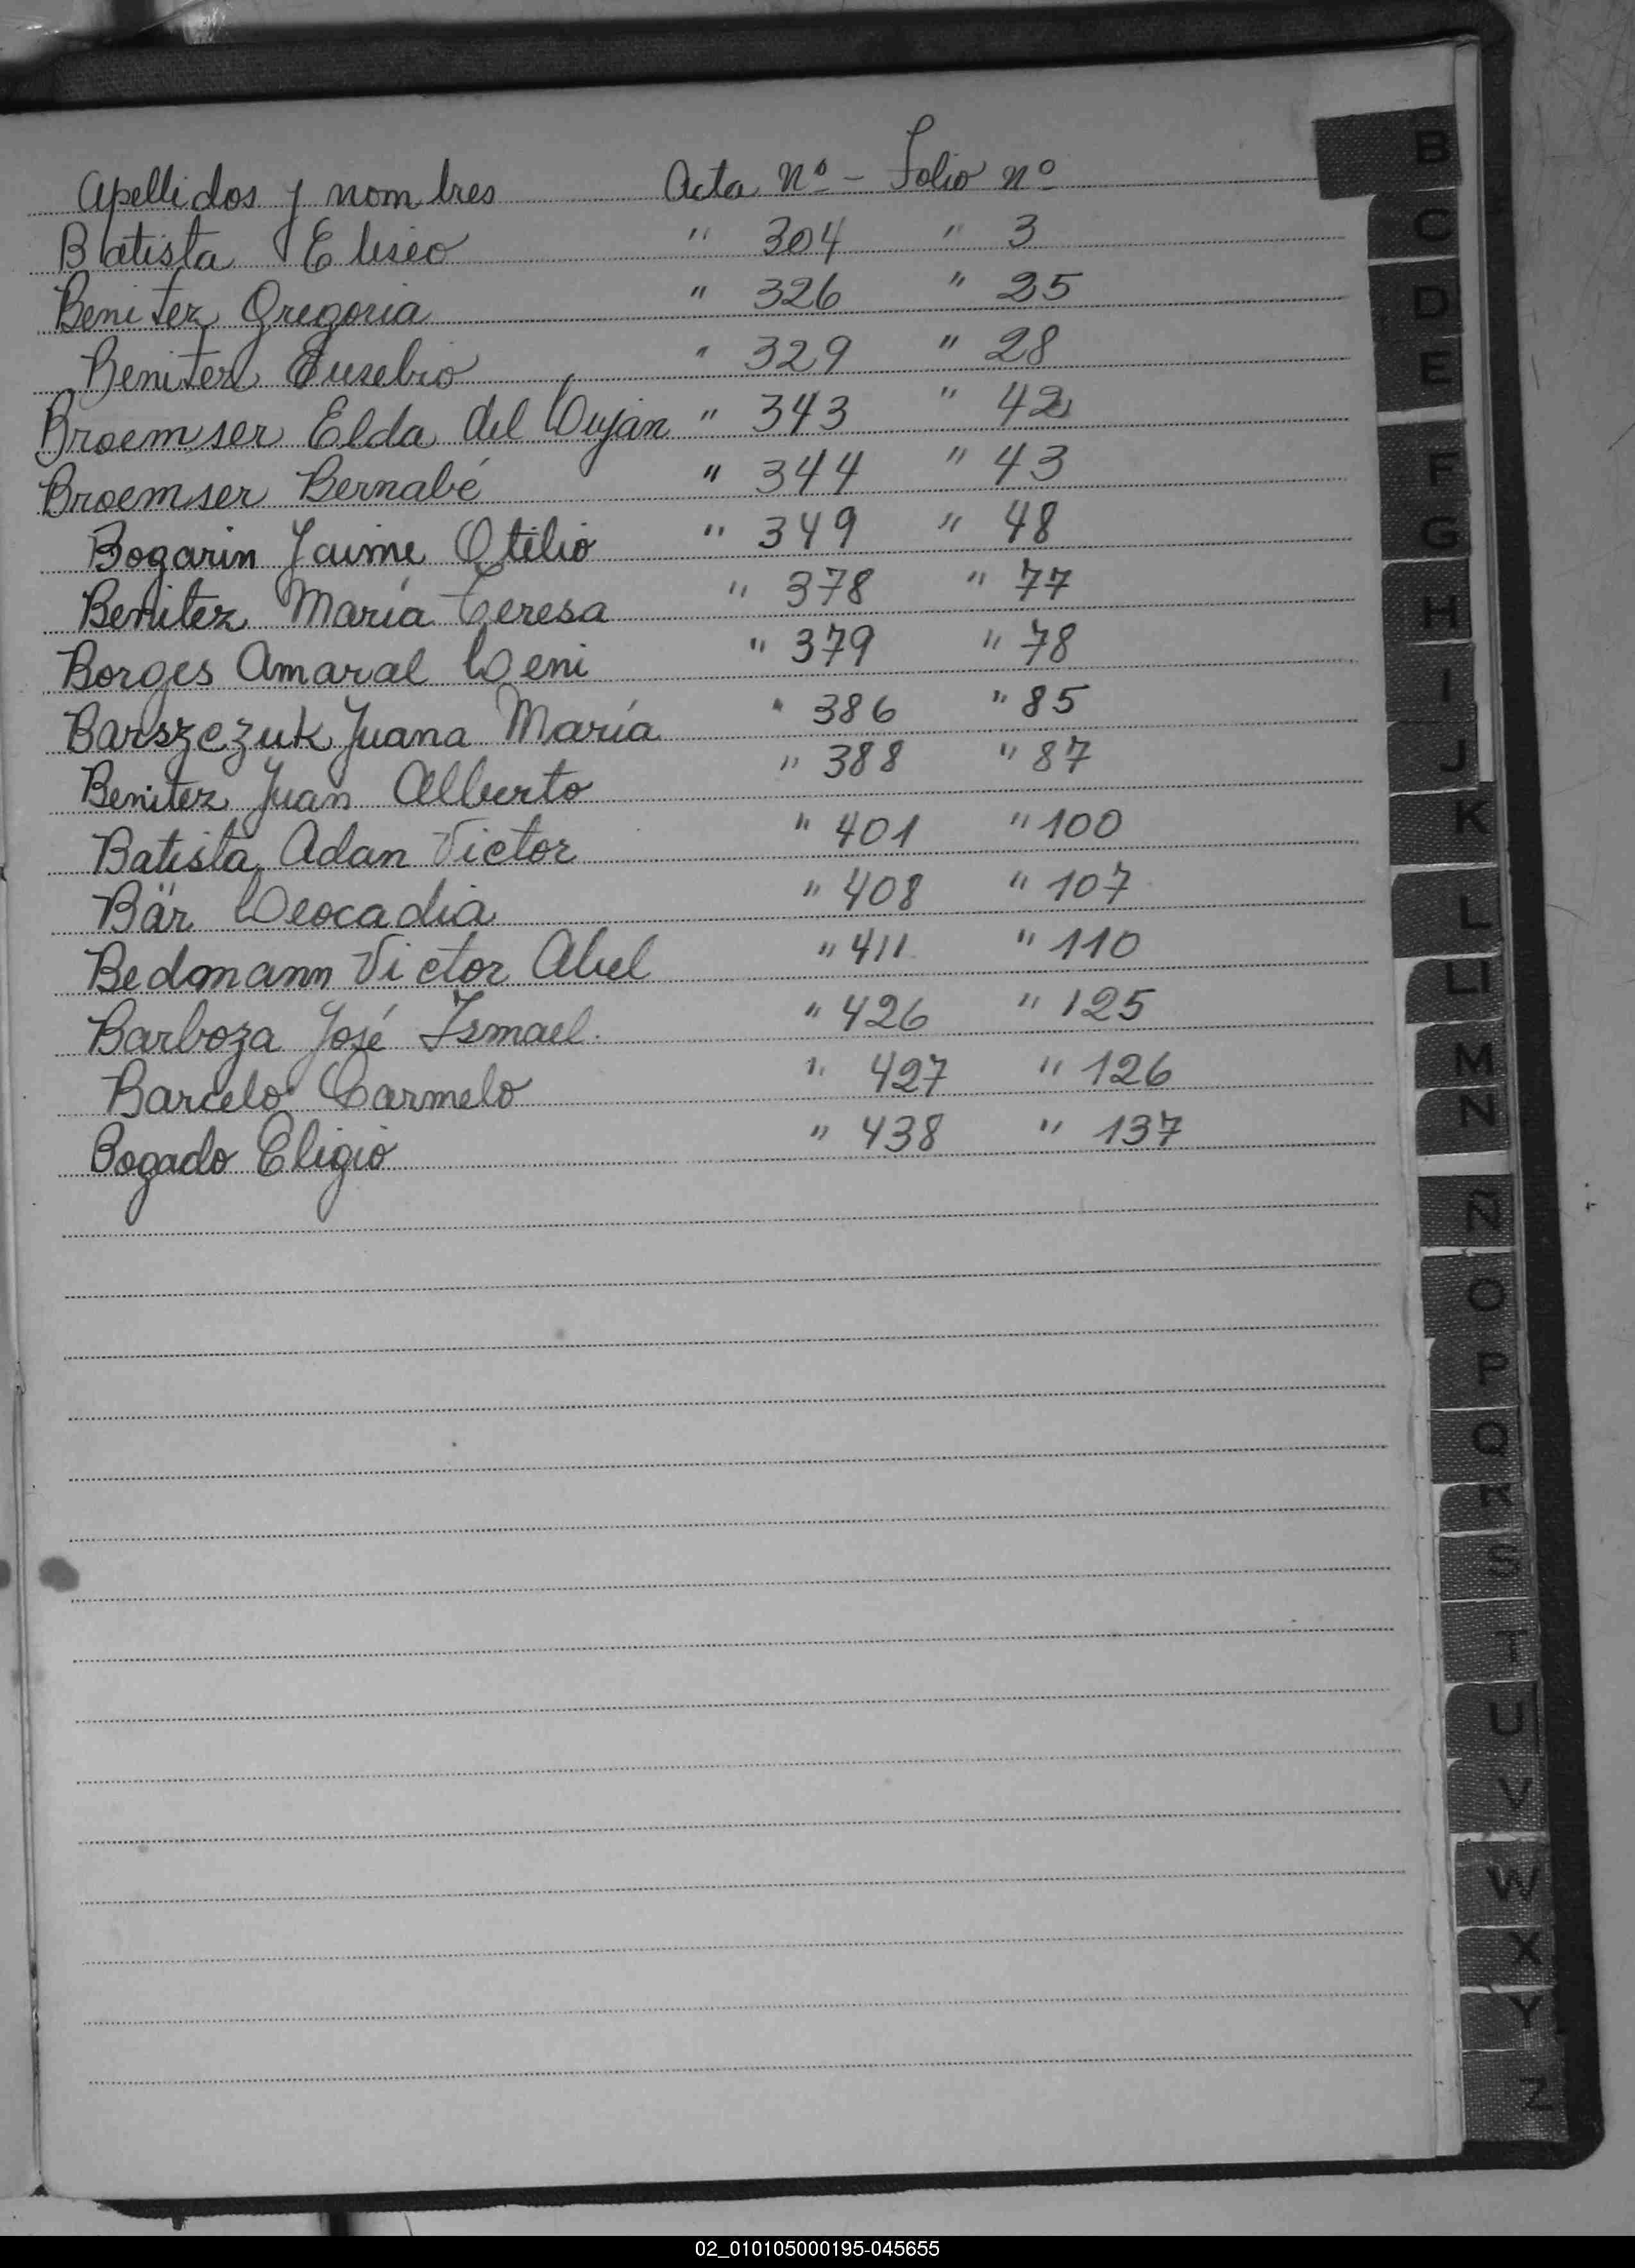 Apellidos y nombres Acta nº - Folio nº
Batista Eliseo " 304 " 3
Benitez Gregoria " 326 " 25
Benitez Eusebio " 329 " 28
Broemser Elda del Luján " 343 " 42
Broemser Bernabé " 344 " 43
Bogarin Jaime Otilio " 349 " 48
Benitez María Teresa " 378 " 77
Borges Amaral Leni " 379 " 78
Barszczuk Juana María " 386 " 85
Benitez Juan Alberto " 388 " 87
Batista Adan Victor " 401 " 100
Bär Leocadia " 408 " 107
Bedmann Victor Abel " 411 " 110
Barboza José Ismael. " 426 " 125
Barcelo Carmelo " 427 " 126
Bogado Eligio " 438 " 137
B
C
D
E
F
G
H
I
J
K
L
LL
M
N
Ñ
O
P
Q
R
S
T
U
V
W
X
Y
Z
02_010105000195-045655